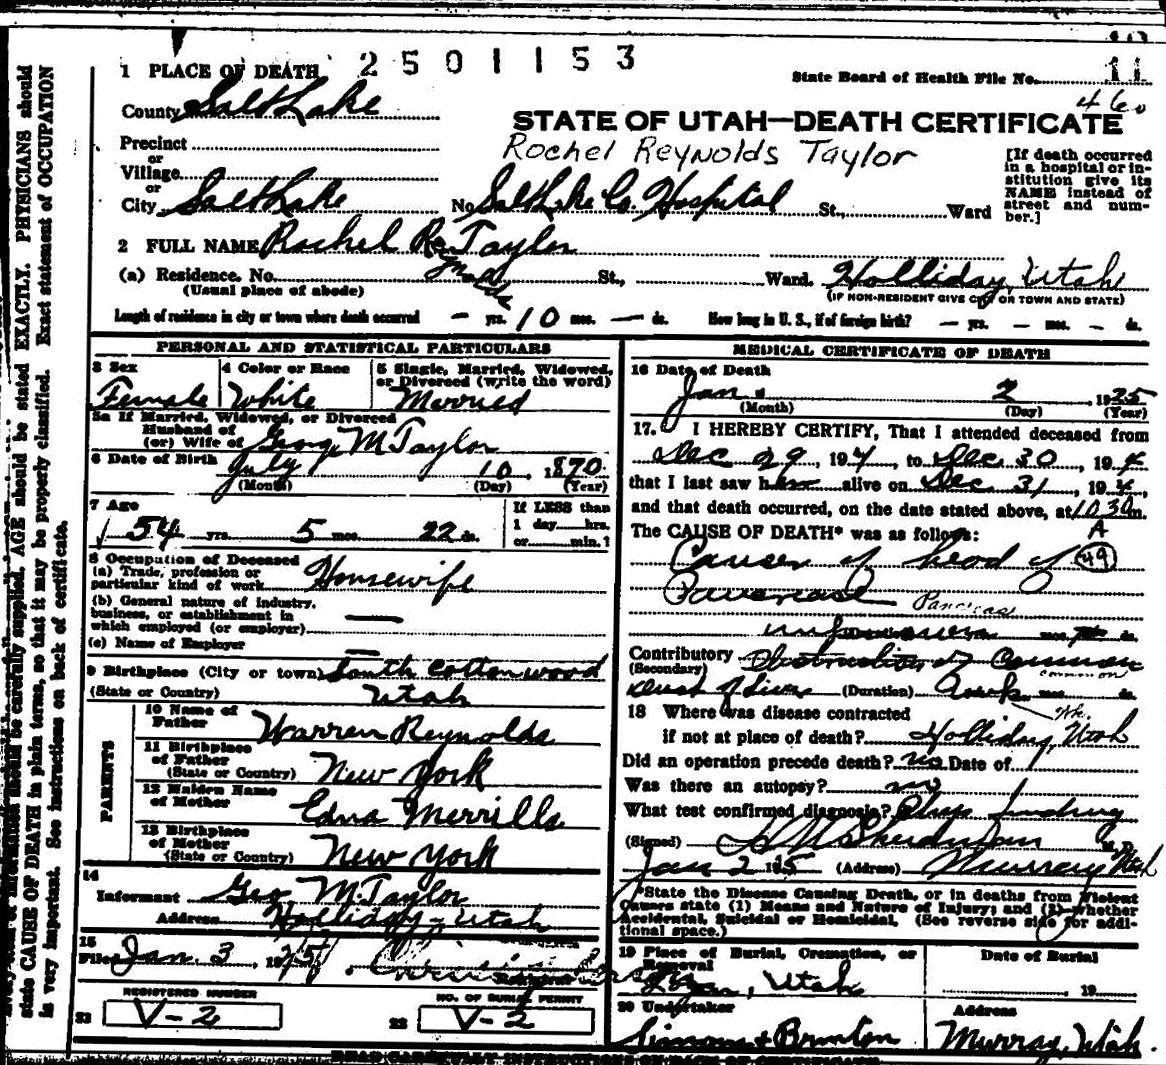 2501153
1 PLACE OF DEATH
State Board of Health File No. 11
460
County Salt Lake
STATE OF UTAH—DEATH CERTIFICATE
Rochel Reynolds Taylor
Precinct
or
Village
or
City Salt Lake No. Salt Lake Co. Hospital St., Ward
[If death occurred
in a hospital or in-
stitution give its
NAME instead of
street and num-
ber.]
2 FULL NAME Rachel Reynolds Taylor
(a) Residence. No. St., Ward. Holliday, Utah
(Usual place of abode)
(IF NON-RESIDENT GIVE CITY OR TOWN AND STATE)
Length of residence in city or town where death occurred — yrs. 10 mos. — ds. How long in U. S., if of foreign birth? — yrs. — mos. — ds.
PERSONAL AND STATISTICAL PARTICULARS
3 Sex
Female
4 Color or Race
White
5 Single, Married, Widowed,
or Divorced (write the word)
Married
5a If Married, Widowed, or Divorced
Husband of
(or) Wife of George M Taylor
6 Date of Birth July 10, 1870
(Month) (Day) (Year)
7 Age
54 yrs. 5 mos. 22 ds.
If LESS than
1 day hrs.
or min.?
8 Occupation of Deceased
(a) Trade, profession or
particular kind of work Housewife
(b) General nature of industry,
business, or establishment in
which employed (or employer) —
(c) Name of Employer —
9 Birthplace (City or town) South Cottonwood
(State or Country) Utah
PARENTS
10 Name of
Father Warren Reynolds
11 Birthplace
of Father
(State or Country) New York
12 Maiden Name
of Mother Edna Merrills
13 Birthplace
of Mother
(State or Country) New York
14
Informant Geo M. Taylor
Address Holliday, Utah
15
Filed Jan. 3, 1925
REGISTERED NUMBER
21 V-2
NO. OF BURIAL PERMIT
22 V-2
MEDICAL CERTIFICATE OF DEATH
16 Date of Death
Jan. 2, 1925
(Month) (Day) (Year)
17. I HEREBY CERTIFY, That I attended deceased from
Dec 29, 1924, to Dec. 30, 1924
that I last saw her alive on Dec. 31, 1924,
and that death occurred, on the date stated above, at 10 30 m.
A
The CAUSE OF DEATH* was as follows:
Cancer of head of 49
Pancreas Pancreas
unknown mos. ds.
Contributory Obstruction of Common
(Secondary) common
Duct of Liver (Duration) mos. ds.
Wk.
18 Where was disease contracted
if not at place of death? Holliday, Utah
Did an operation precede death? no Date of
Was there an autopsy? no
What test confirmed diagnosis?
(Signed)
Jan 2 1925 (Address) Murray Utah
*State the Disease Causing Death, or in deaths from Violent
Causes state (1) Means and Nature of Injury; and (2) whether
Accidental, Suicidal or Homicidal. (See reverse side for addi-
tional space.)
19 Place of Burial, Cremation, or
Removal
Utah
Date of Burial
, 19
20 Undertaker
Address
Murray, Utah.
should be carefully supplied. AGE should be stated EXACTLY. PHYSICIANS should
state CAUSE OF DEATH in plain terms, so that it may be properly classified. Exact statement of OCCUPATION
is very important. See instructions on back of certificate.
READ CAREFULLY INSTRUCTIONS ON BACK OF CERTIFICATE